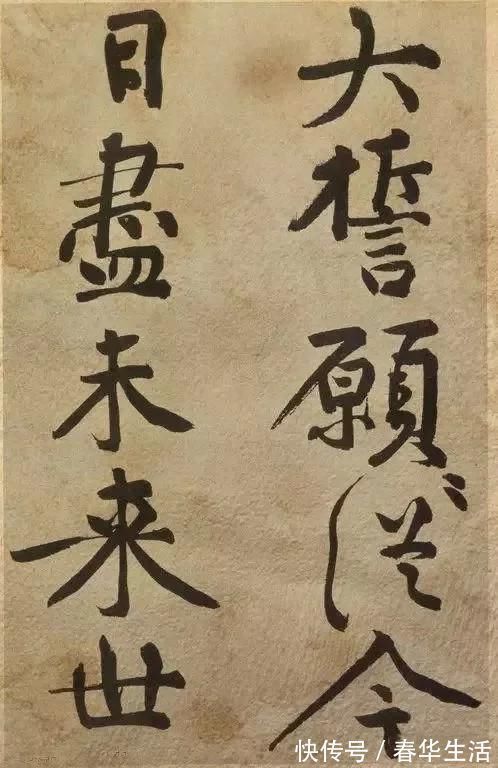 大誓願從今
日盡未来世
快传号/春华生活